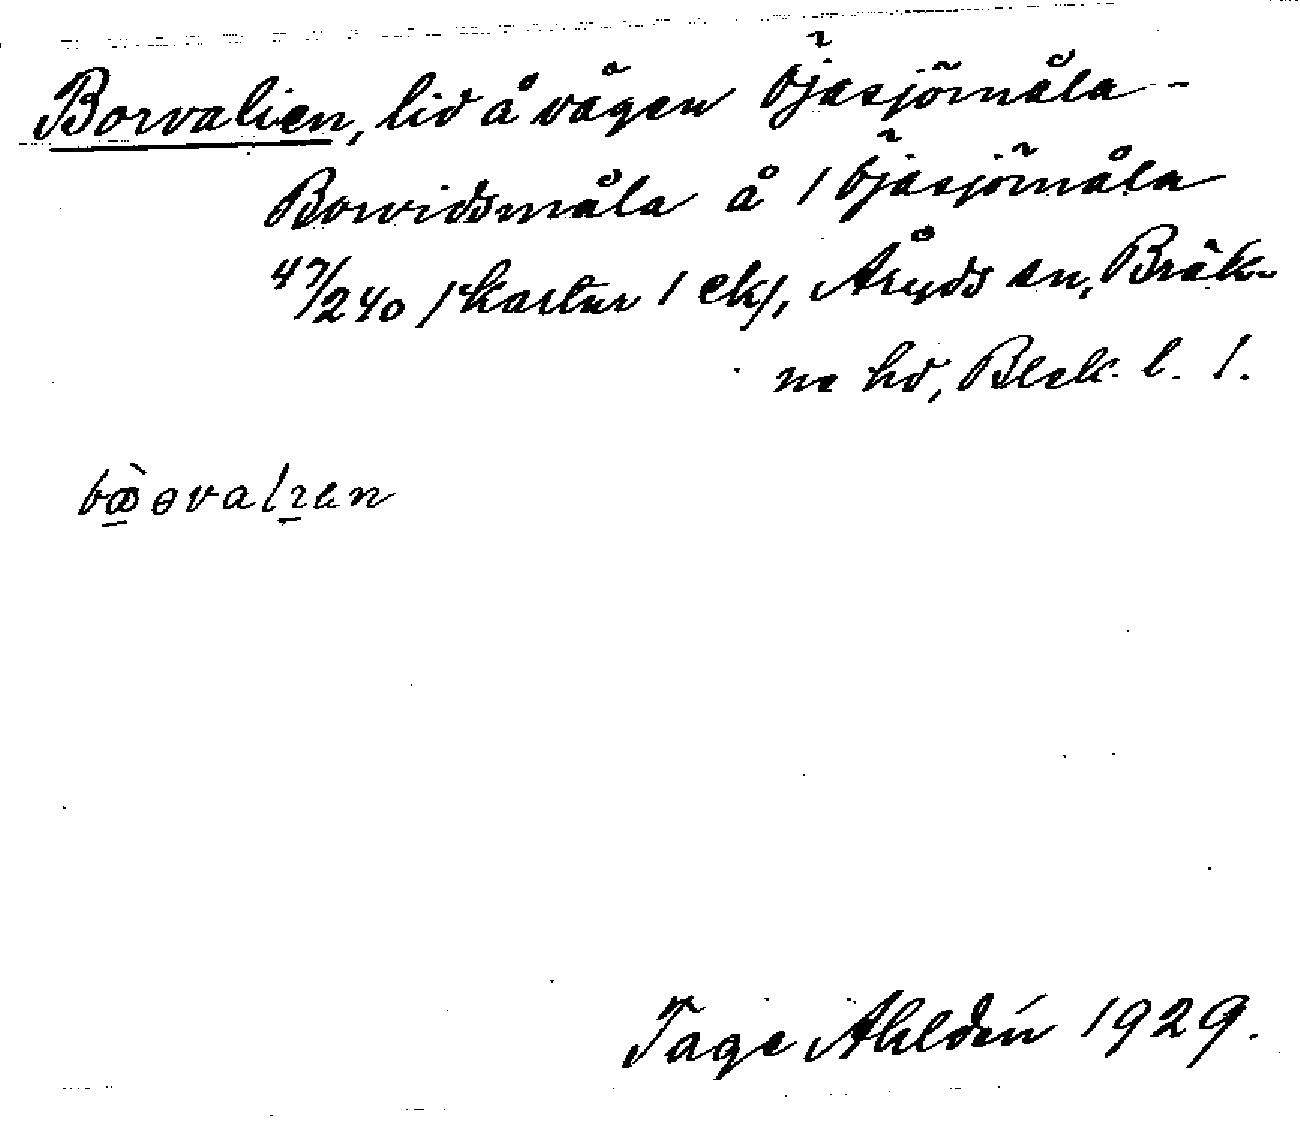 Borvalien, lid å vägen Öjasjömåla -
Borvidsmåla å 1 Öjasjömåla
47/240 /kartan 1 ek/, Åryds sn, Bräk-
ne hd, Blek. l. 1.
Tage Ahldén 1929.